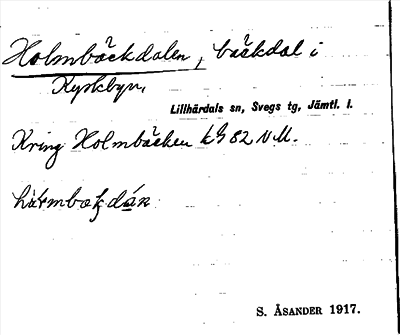 Holmbäckdalen, bäckdal i
Kyrkbyn,
Lillhärdals sn, Svegs tg, Jämtl. l.
Kring Holmbäcken 82 NM.
S. ÅSANDER 1917.